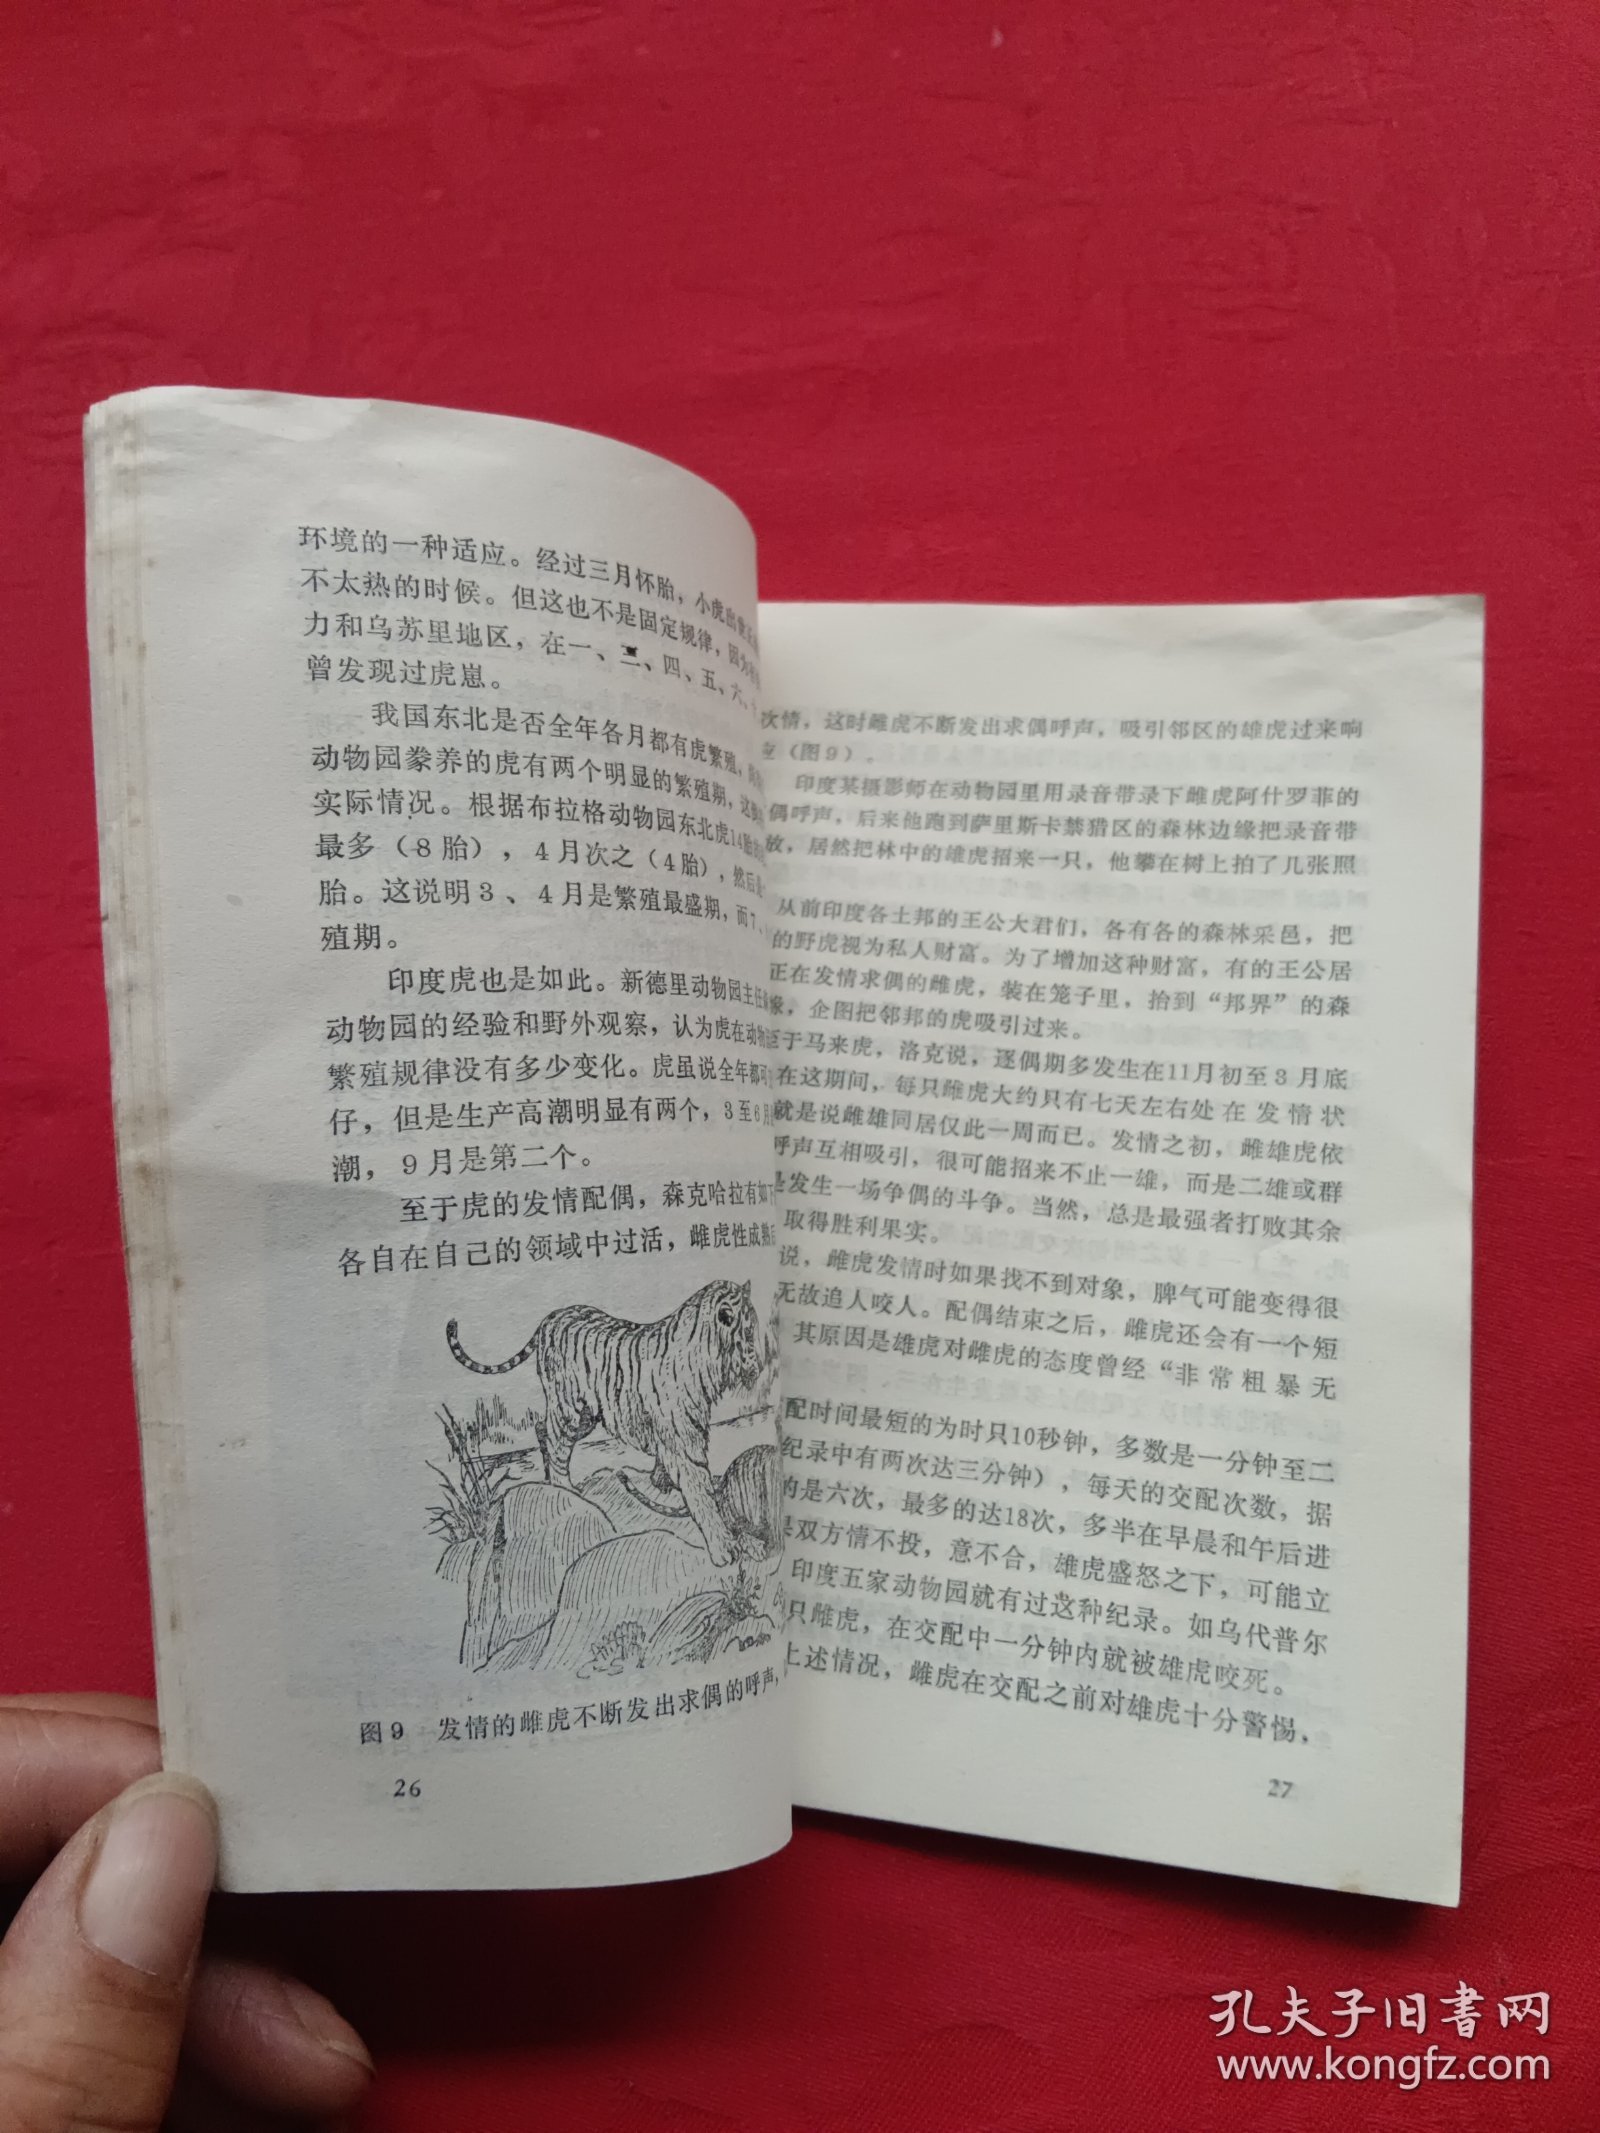 环境的一种适应。经过三月怀胎，小虎出世
不太热的时候。但这也不是固定规律，因为
力和乌苏里地区，在一、二、四、五、六、
曾发现过虎崽。
我国东北是否全年各月都有虎繁殖，
动物园豢养的虎有两个明显的繁殖期，这
实际情况。根据布拉格动物园东北虎14胎
最多（8胎），4月次之（4胎），然后是
胎。这说明3、4月是繁殖最盛期，而7、
殖期。
印度虎也是如此。新德里动物园主任
动物园的经验和野外观察，认为虎在动物
繁殖规律没有多少变化。虎虽说全年都可
仔，但是生产高潮明显有两个，3至6月
潮，9月是第二个。
至于虎的发情配偶，森克哈拉有如下
各自在自己的领域中过活，雌虎性成熟后
图9 发情的雌虎不断发出求偶的呼声，
26
次情，这时雌虎不断发出求偶呼声，吸引邻区的雄虎过来响
应（图9）。
印度某摄影师在动物园里用录音带录下雌虎阿什罗菲的
偶呼声，后来他跑到萨里斯卡禁猎区的森林边缘把录音带
放，居然把林中的雄虎招来一只，他攀在树上拍了几张照
从前印度各土邦的王公大君们，各有各的森林采邑，把
的野虎视为私人财富。为了增加这种财富，有的王公居
正在发情求偶的雌虎，装在笼子里，抬到“邦界”的森
象，企图把邻邦的虎吸引过来。
至于马来虎，洛克说，逐偶期多发生在11月初至3月底
在这期间，每只雌虎大约只有七天左右处在发情状
就是说雌雄同居仅此一周而已。发情之初，雌雄虎依
呼声互相吸引，很可能招来不止一雄，而是二雄或群
是发生一场争偶的斗争。当然，总是最强者打败其余
取得胜利果实。
说，雌虎发情时如果找不到对象，脾气可能变得很
无故追人咬人。配偶结束之后，雌虎还会有一个短
其原因是雄虎对雌虎的态度曾经“非常粗暴无
配时间最短的为时只10秒钟，多数是一分钟至二
纪录中有两次达三分钟），每天的交配次数，据
的是六次，最多的达18次，多半在早晨和午后进
果双方情不投，意不合，雄虎盛怒之下，可能立
印度五家动物园就有过这种纪录。如乌代普尔
只雌虎，在交配中一分钟内就被雄虎咬死。
上述情况，雌虎在交配之前对雄虎十分警惕，
27
孔夫子旧书网
www.kongfz.com